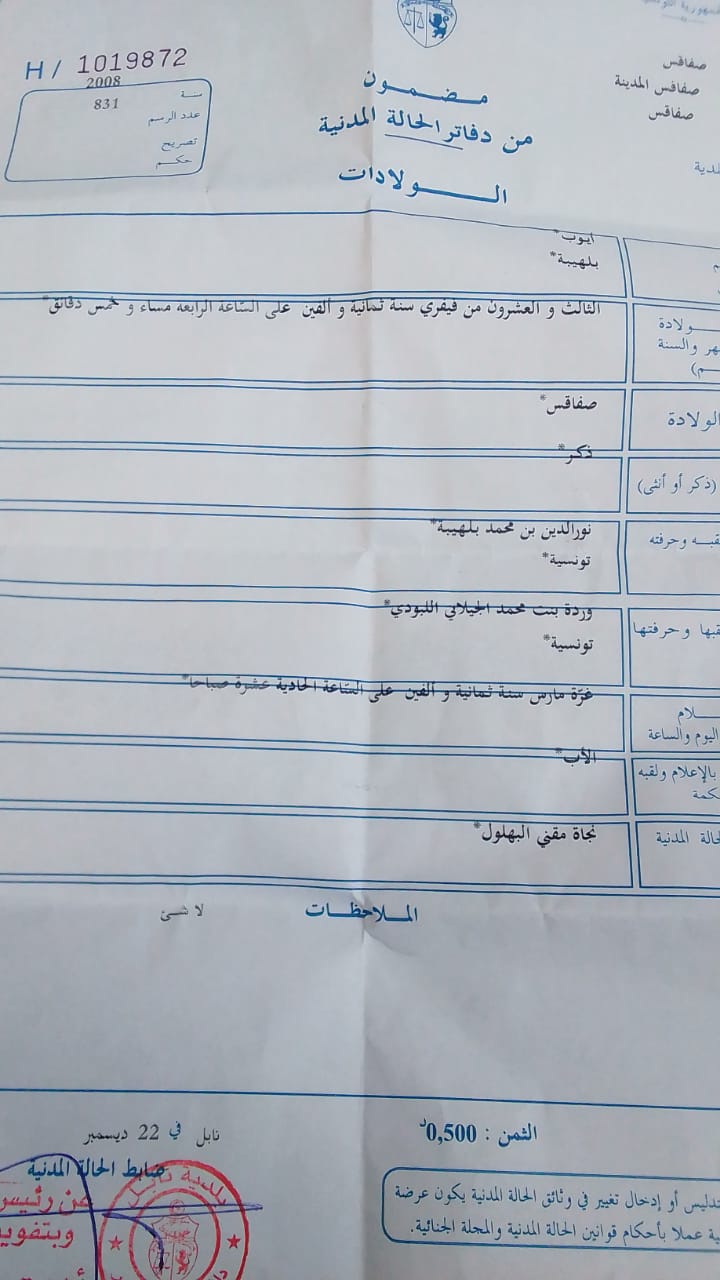 صفاقس
صفاقس المدينة
صفاقس
H/ 1019872
سنة 2008
عدد الرسم 831
تصريح
حكم
مضمون
من دفاتر الحالة المدنية
الولادات
ايوب*
بلهيبة*
ولادة
والسنة
الثالث و العشرون من فيفري سنة ثمانية و ألفين على الساعة الرابعة مساء و خمس دقائق*
الولادة
صفاقس*
(ذكر أو أنثى)
ذكر*
وحرفته
نورالدين بن محمد بلهيبة*
تونسية*
وحرفتها
وردة بنت محمد الجيلاني اللبودي*
تونسية*
اليوم والساعة
غرّة مارس سنة ثمانية و ألفين على الساعة الحادية عشرة صباحا*
بالإعلام ولقبه
الأب*
المدنية
نجاة مقني البهلول*
الملاحظات
لا شئ
الثمن : 0,500د
نابل في 22 ديسمبر
ضابط الحالة المدنية
عن رئيس
أو إدخال تغيير في وثائق الحالة المدنية يكون عرضة
عملا بأحكام قوانين الحالة المدنية والمجلة الجنائية.